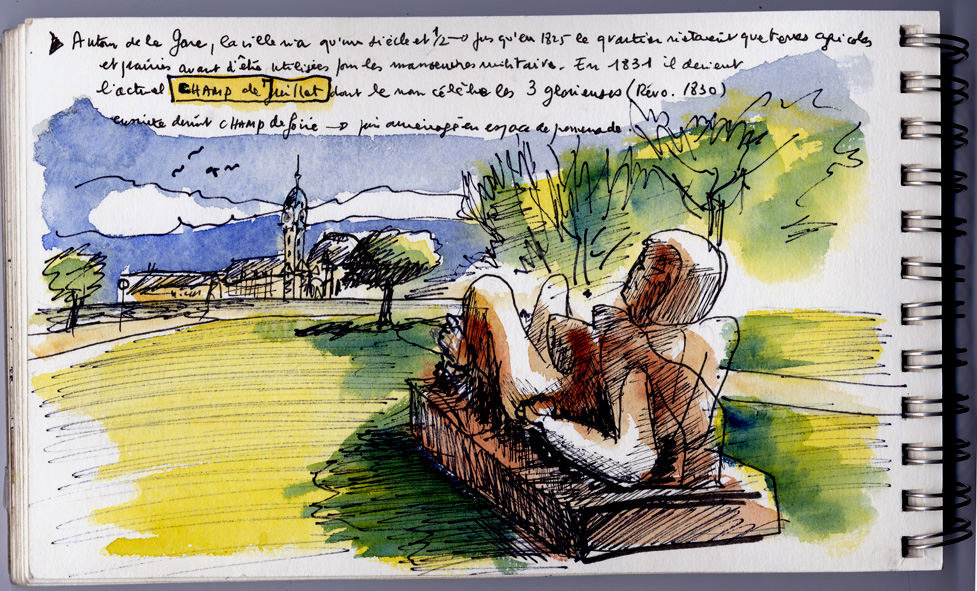 Autour de la Gare, la ville n'a qu'un siècle et 1/2 → jusqu'en 1825 le quartier n'étaient que terres agricoles
et prairies avant d'être utilisées pour les manœuvres militaire. En 1831 il devient
l'actuel CHAMP de Juillet dont le nom célèbre les 3 glorieuses (Révo. 1830)
ensuite devint CHAMP de foire → puis aménagé en espace de promenade